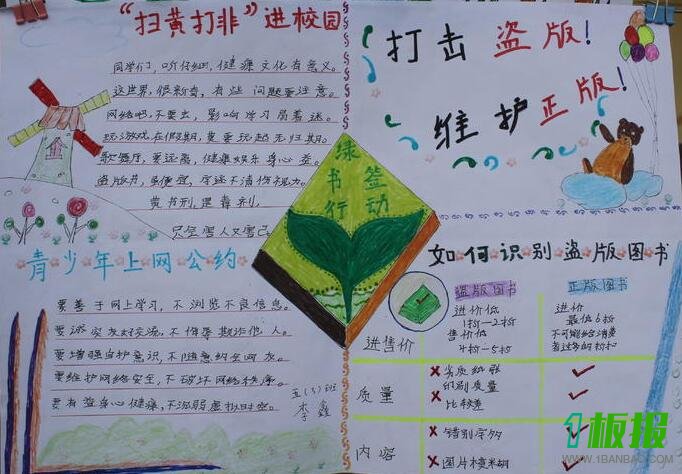 "扫黄打非"进校园
同学们，听仔细，健康文化有意义。
这世界，很新奇，有些问题要注意。
网络吧，不要去，影响学习局着迷。
玩游戏，在假期，莫要玩起无归期。
歌舞厅，要远离，健康娱乐身心益。
盗版书，虽便宜，字迹不清伤视力。
黄书刊，是毒剂，
只会害人又害己
打击盗版！
维护正版！
绿书签行动
青少年上网公约
要善于网上学习，不浏览不良信息。
要诚实友好交流，不侮辱欺诈他人。
要增强自护意识，不随意约会网友。
要维护网络安全，不破坏网络秩序。
要有益身心健康，不沉溺虚拟时空。
五(5)班
李鑫
如何识别盗版图书
盗版图书
正版图书
进售价
进价低
1折—2折
售价低
4折—5折
进价
最低6折
不可能给消费
者过多的折扣
质量
劣质纸张
印刷质量
比较差
内容
错别字多
图片模糊
1板报
WWW.1BANBAO.COM